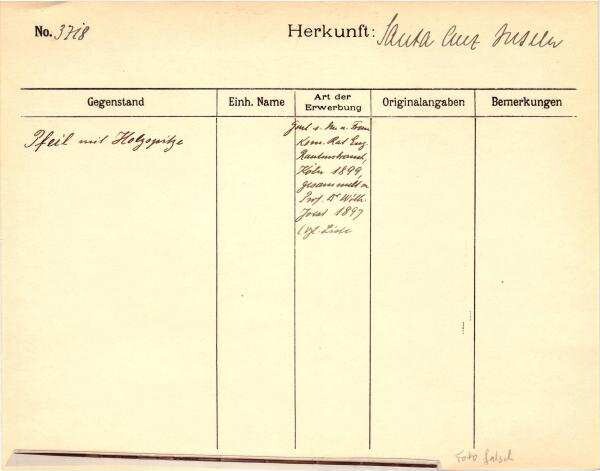 No. 3718
Herkunft: Santa Cruz Inseln
Gegenstand
Einh. Name
Art der Erwerbung
Originalangaben
Bemerkungen
Pfeil mit Holzspitze
Kom. Rat Eug.
Rautenstrauch,
Köln 1899,
gesammelt v.
Prof. Dr Wilh.
Joest 1897
(vgl. Liste
Foto falsch